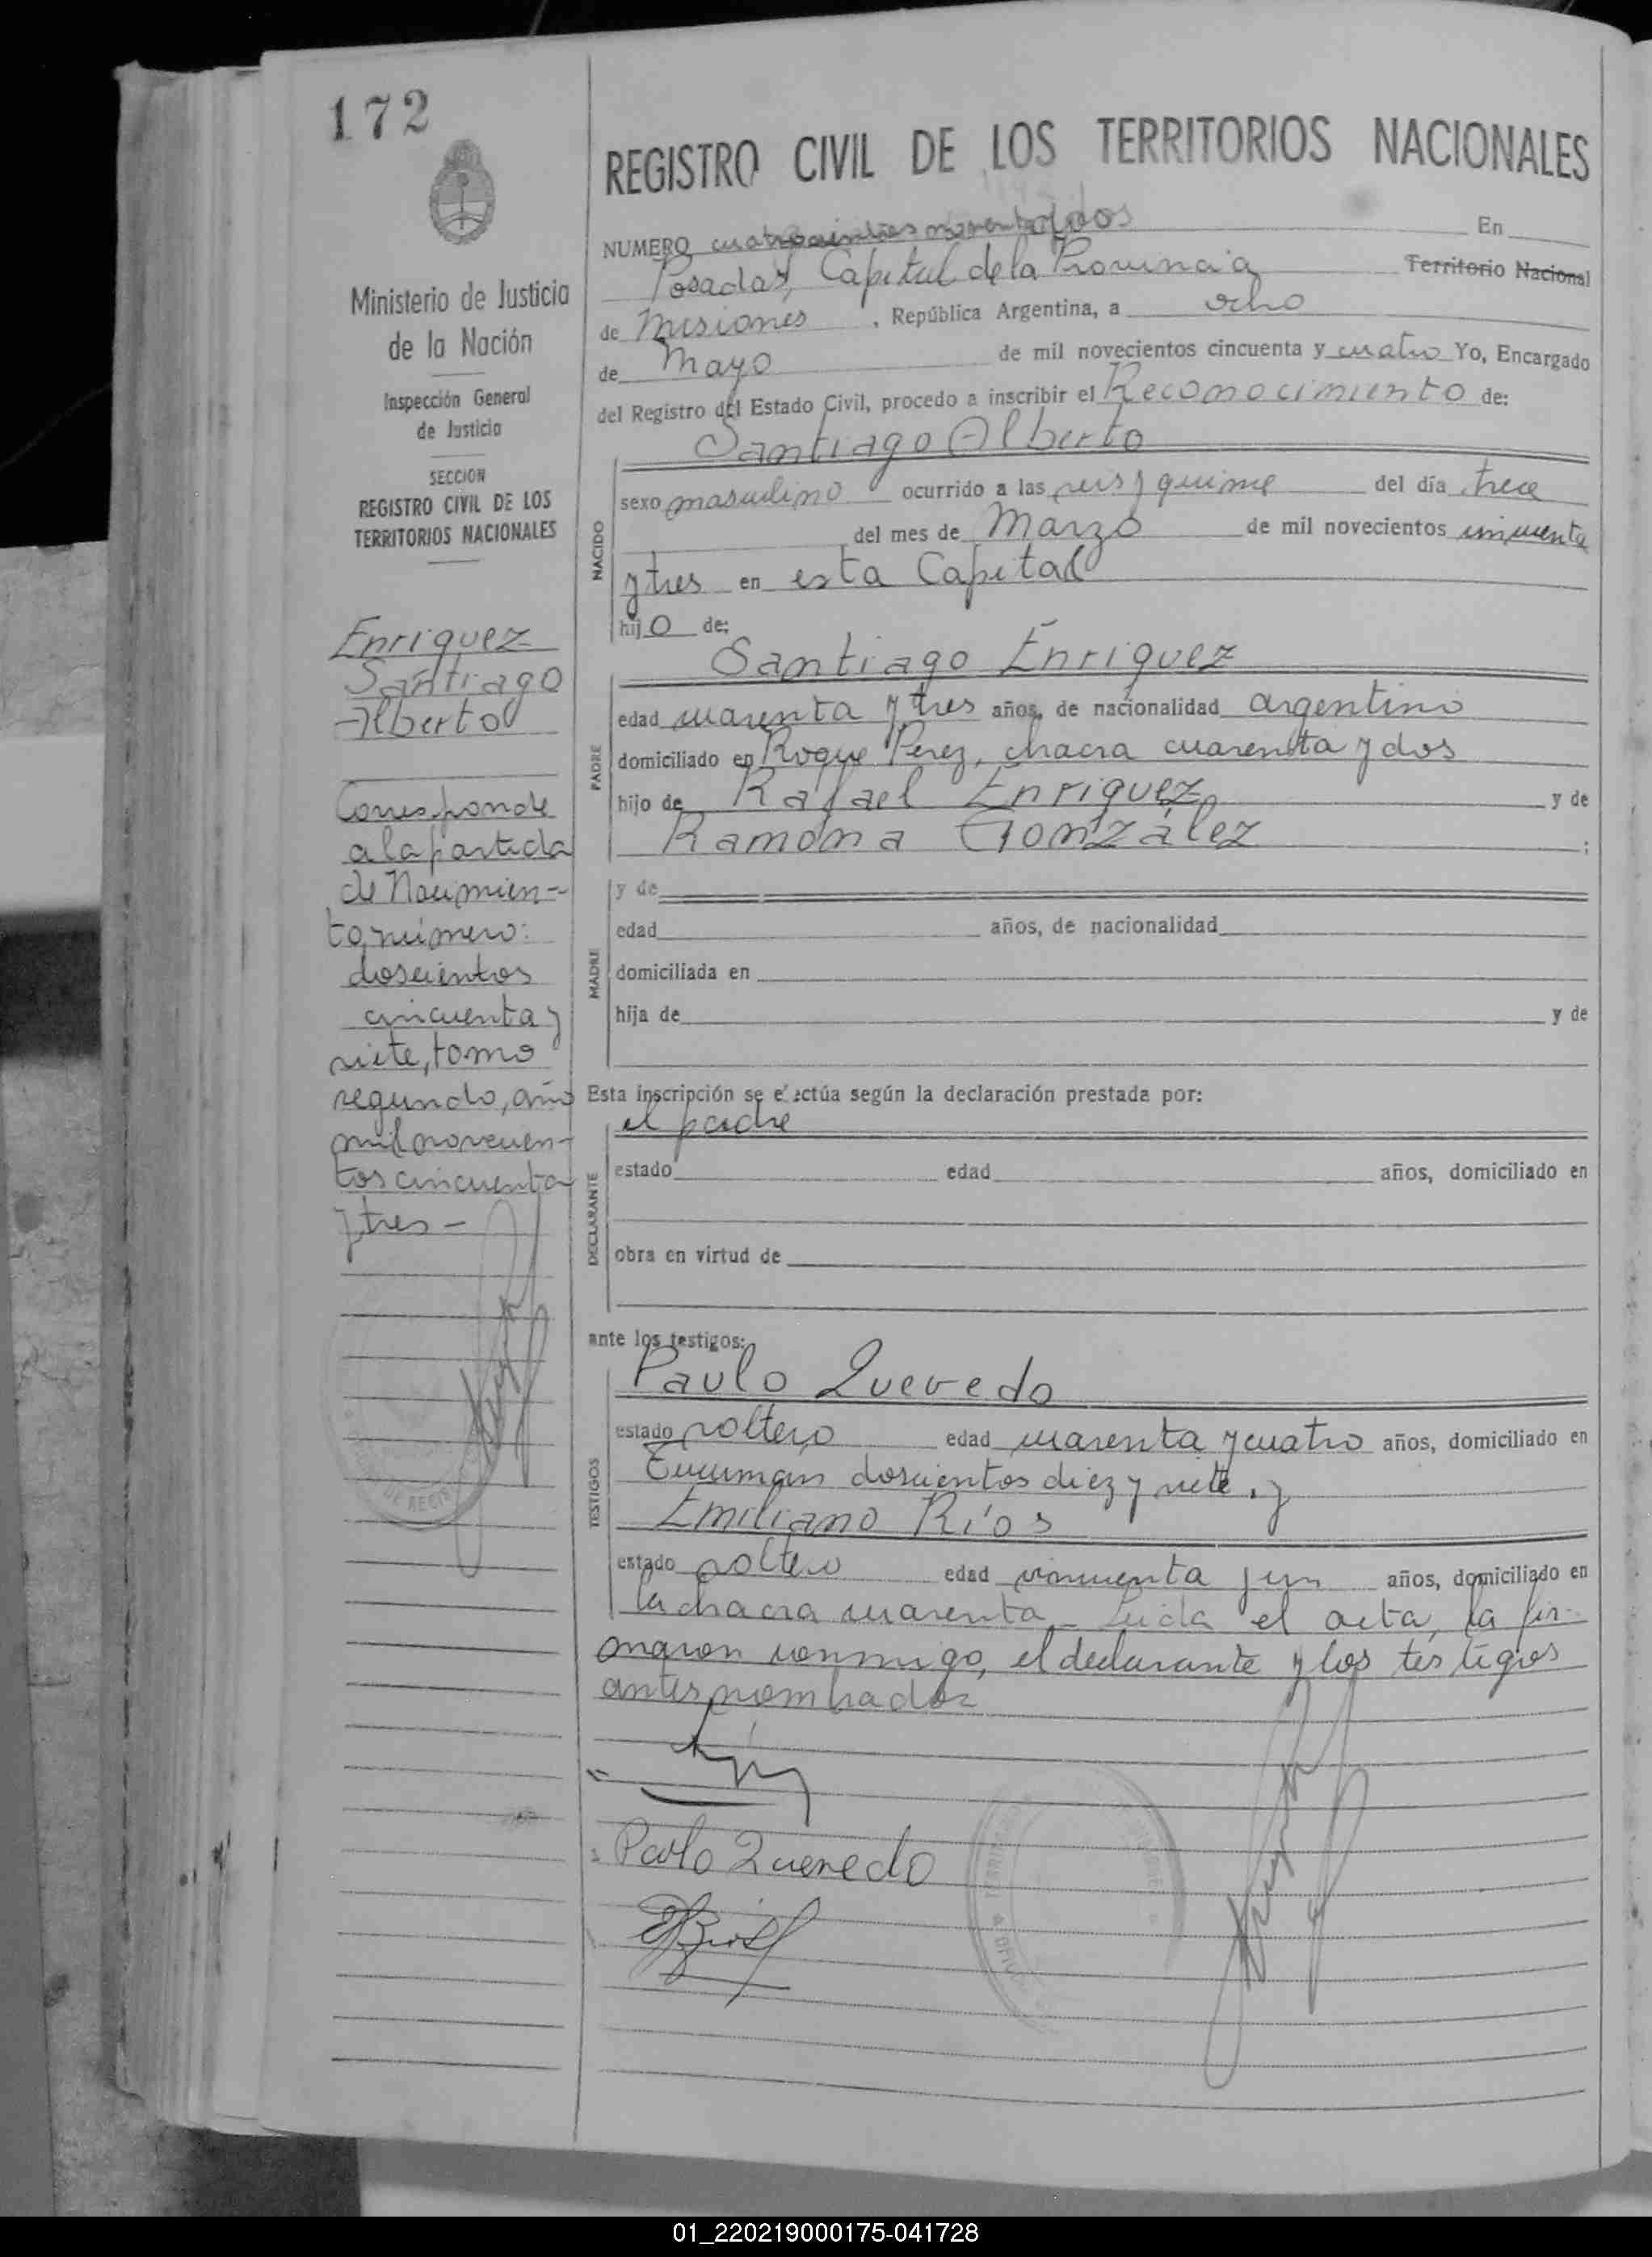 172
REGISTRO CIVIL DE LOS TERRITORIOS NACIONALES
NUMERO cuatrocientos noventa y dos En
Posadas, Capital de la Provincia Territorio Nacional
de Misiones, República Argentina, a ocho
de Mayo de mil novecientos cincuenta y cuatro Yo, Encargado
del Registro del Estado Civil, procedo a inscribir el Reconocimiento de:
Santiago Alberto
NACIDO
sexo masculino ocurrido a las seis y quince del día trece
del mes de Marzo de mil novecientos cincuenta
y tres en esta Capital
hijo de:
Santiago Enriquez
PADRE
edad cuarenta y tres años, de nacionalidad argentino
domiciliado en Roque Perez, chacra cuarenta y dos
hijo de Rafael Enriquez y de
Ramona González ;
MADRE
y de
edad años, de nacionalidad
domiciliada en
hija de y de
Esta inscripción se efectúa según la declaración prestada por:
el padre
DECLARANTE
estado edad años, domiciliado en
obra en virtud de
ante los testigos:
Paulo Quevedo
TESTIGOS
estado soltero edad cuarenta y cuatro años, domiciliado en
Tucumán doscientos diez y siete, y
Emiliano Ríos
estado soltero edad cincuenta y un años, domiciliado en
la chacra cuarenta - Leida el acta, la fir-
maron conmigo, el declarante y los testigos
antes nombrados
Paulo Quevedo
Ministerio de Justicia
de la Nación
Inspección General
de Justicia
SECCION
REGISTRO CIVIL DE LOS
TERRITORIOS NACIONALES
Enriquez
Santiago
Alberto
Corresponde
a la partida
de Nacimien-
to número:
doscientos
cincuenta y
siete, tomo
segundo, año
mil novecien-
tos cincuenta
y tres -
01_220219000175-041728